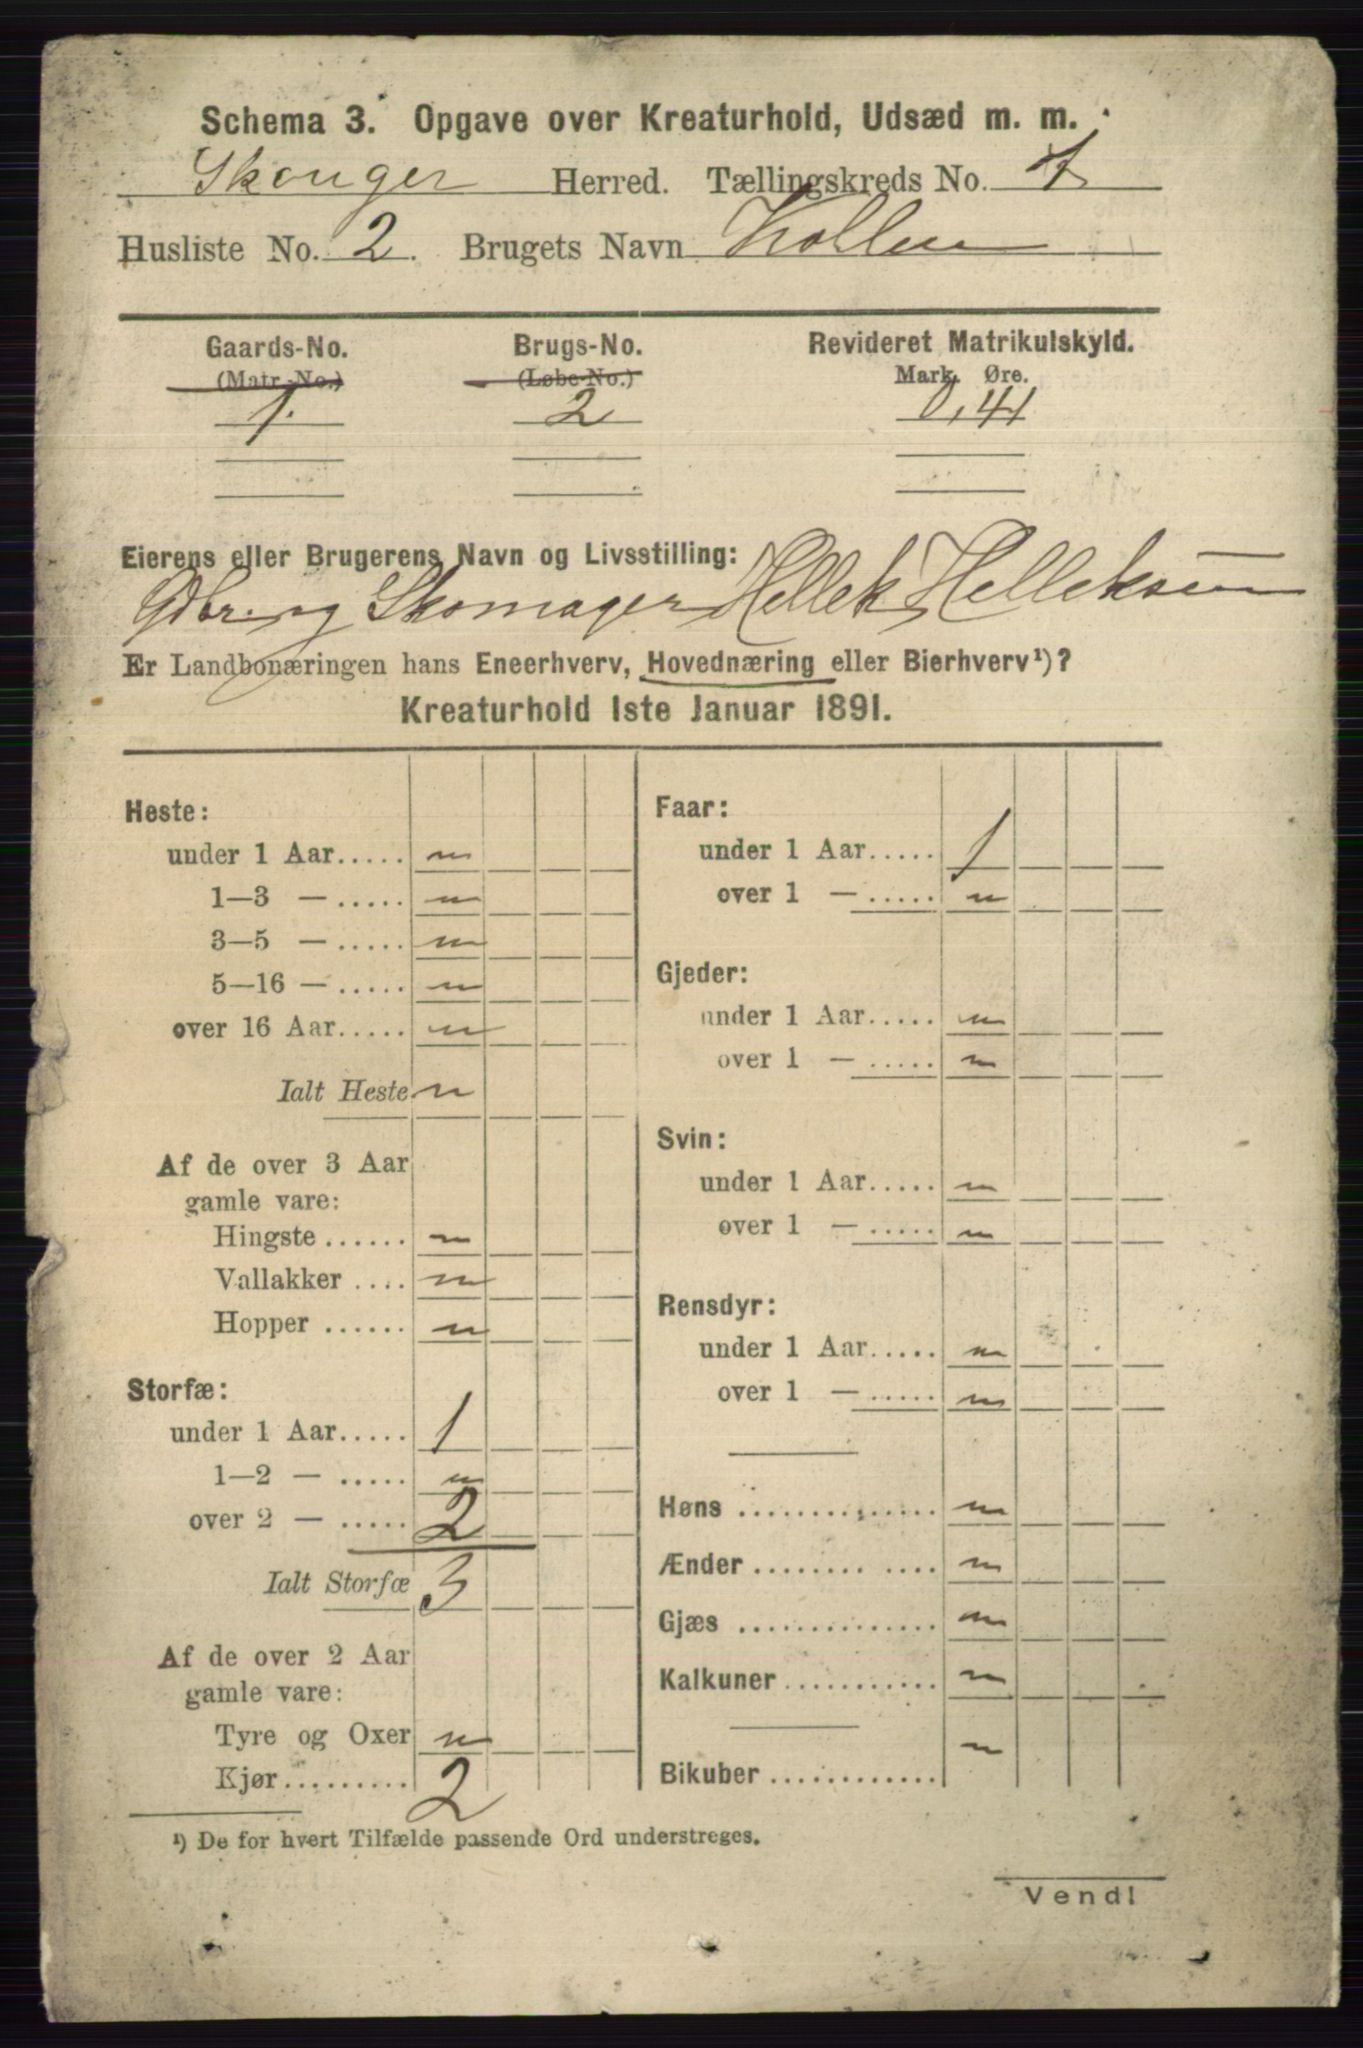 Schema 3. Opgave over Kreaturhold, Udsæd m. m.
Skouger Herred. Tællingskreds No. 1
Husliste No. 2. Brugets Navn Kollen
Gaards-No. Brugs-No. Revideret Matrikulskyld.
(Matr.-No.) (Løbe-No.) Mark. Øre.
1. 2 0,41
Eierens eller Brugerens Navn og Livsstilling:
Gdbr. og Skomager Hellek Helleksen
Er Landbonæringen hans Eneerhverv, Hovednæring eller Bierhverv¹)?
Kreaturhold 1ste Januar 1891.
Heste:
under 1 Aar..... "
1—3 — ..... "
3—5 — ..... "
5—16 — ..... "
over 16 Aar..... "
Ialt Heste "
Af de over 3 Aar
gamle vare:
Hingste ...... "
Vallakker .... "
Hopper ...... "
Storfæ:
under 1 Aar..... 1
1—2 — ..... "
over 2 — ..... 2
Ialt Storfæ 3
Af de over 2 Aar
gamle vare:
Tyre og Oxer "
Kjør......... 2
Faar:
under 1 Aar..... 1
over 1 — ..... "
Gjeder:
under 1 Aar..... "
over 1 — ..... "
Svin:
under 1 Aar..... "
over 1 — ..... "
Rensdyr:
under 1 Aar..... "
over 1 — ..... "
Høns .............. "
Ænder ........ .... "
Gjæs .............. "
Kalkuner ........... "
Bikuber ............ "
¹) De for hvert Tilfælde passende Ord understreges.
Vend!